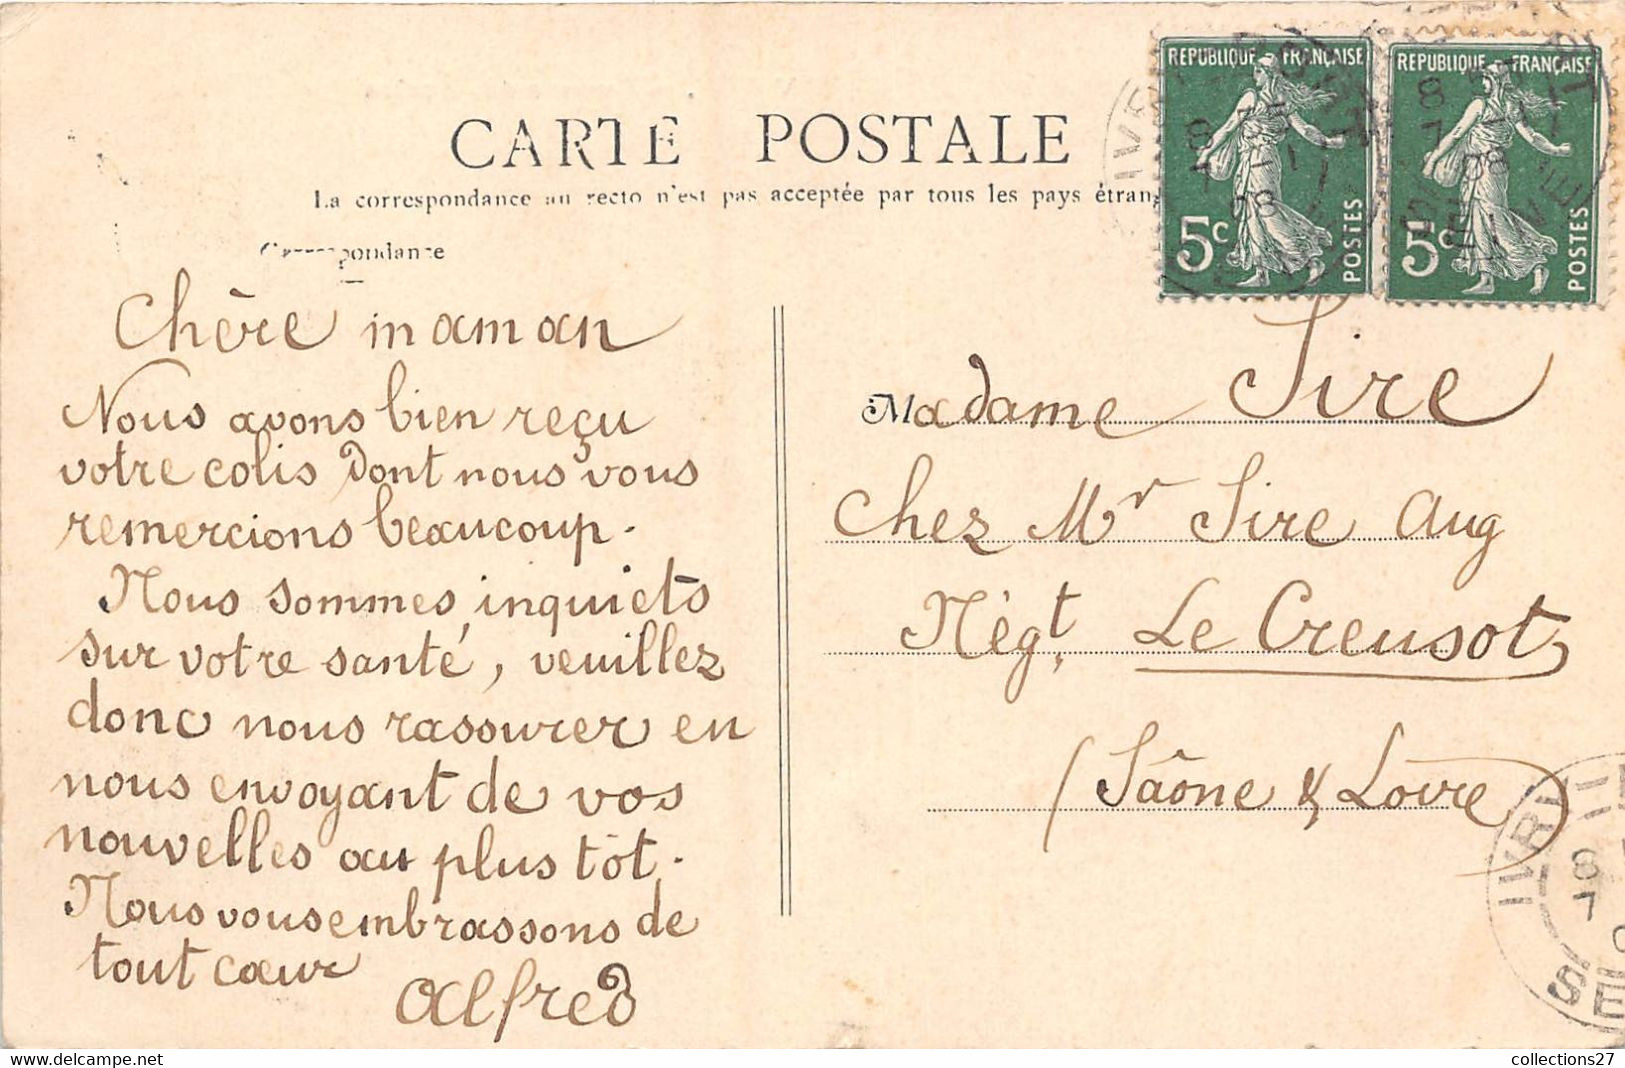 CARTE POSTALE
La correspondance au recto n'est pas acceptée par tous les pays étrang
Correspondance
REPUBLIQUE FRANÇAISE
5c
POSTES
REPUBLIQUE FRANÇAISE
5c
POSTES
Chère maman
Nous avons bien reçu
votre colis dont nous vous
remercions beaucoup.
Nous sommes inquiets
sur votre santé, veuillez
donc nous rassurer en
nous envoyant de vos
nouvelles au plus tôt.
Nous vous embrassons de
tout cœur
Alfred
Madame Sire
Chez Mr Sire Aug
Négt. Le Creusot
(Saône & Loire)
IVRY
8
7
SE
collections27